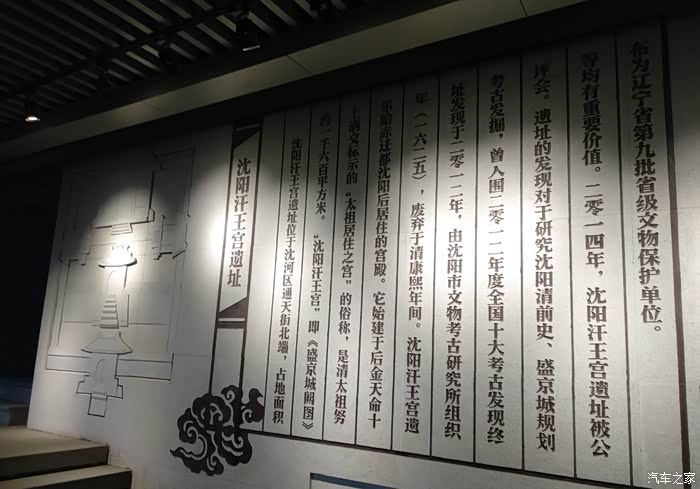 沈阳汗王宫遗址
沈阳汗王宫遗址位于沈河区通天街北端，占地面积
约一千六百平方米。“沈阳汗王宫”即《盛京城阙图》
上满文标示的“太祖居住之宫”的俗称，是清太祖努
尔哈赤迁都沈阳后居住的宫殿。它始建于后金天命十
年（一六二五），废弃于清康熙年间。沈阳汗王宫遗
址发现于二零一二年，由沈阳市文物考古研究所组织
考古发掘，曾入围二零一二年度全国十大考古发现终
评会。遗址的发现对于研究沈阳清前史、盛京城规划
等均有重要价值。二零一四年，沈阳汗王宫遗址被公
布为辽宁省第九批省级文物保护单位。
汽车之家